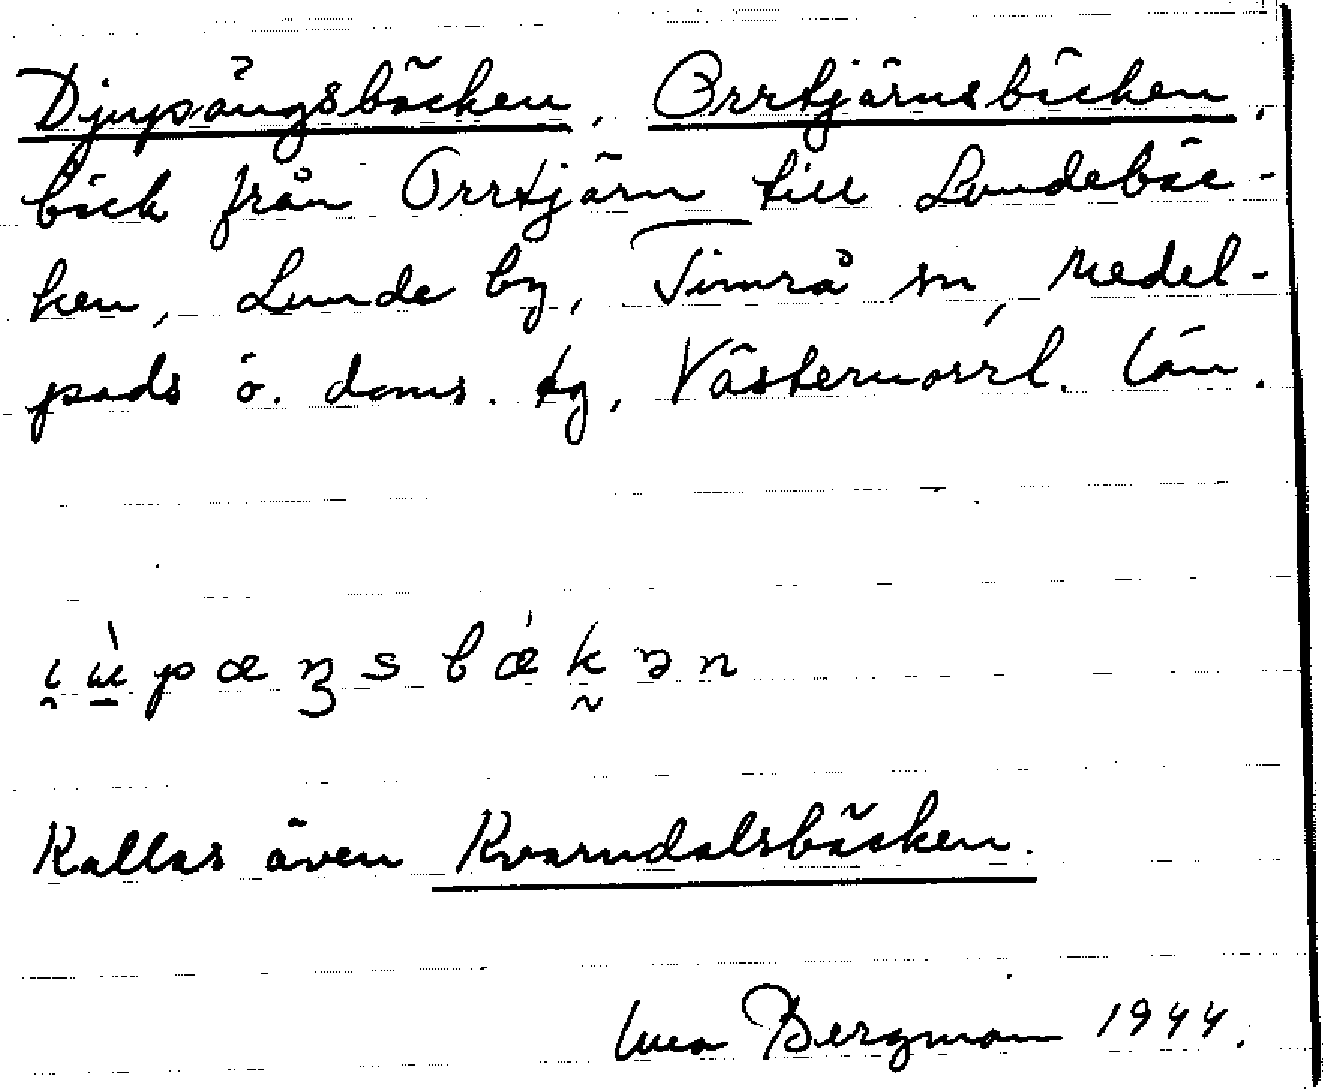 Djupängsbäcken, Orrtjärnsbäcken,
bäck från Orrtjärn till Lundebäc-
ken, Lunde by, Timrå sn, Medel-
pads ö. doms. tg, Västernorrl. län.
i̯ ù̲ p æ ŋ s b ǽ k̰ ə n
Kallas även Kvarndalsbäcken.
Bergman 1944.